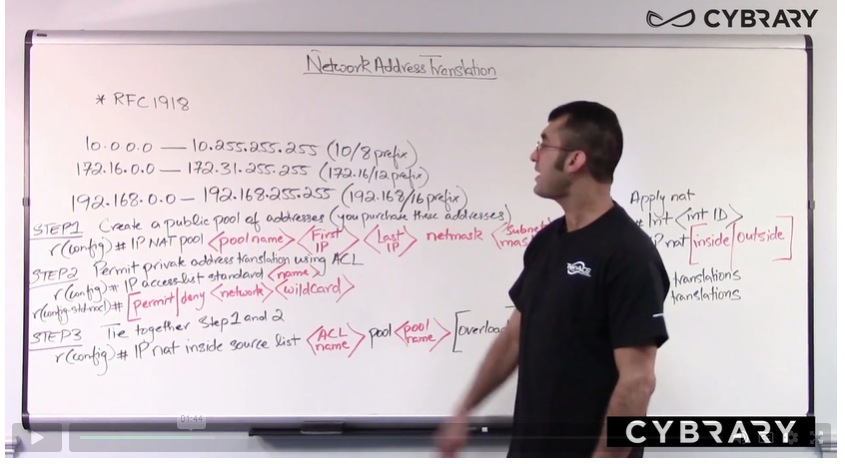 CYBRARY
Network Address Translation
* RFC1918
10.0.0.0 — 10.255.255.255 (10/8 prefix)
172.16.0.0 — 172.31.255.255 (172.16/12 prefix)
192.168.0.0 — 192.168.255.255 (192.168/16 prefix)
STEP1 Create a public pool of addresses (you purchase these addresses)
r(config)# IP NAT pool <pool name> <First IP> <Last IP> netmask <Subnet mask
STEP2 Permit private address translation using ACL
r(config)# IP access-list standard <name>
r(config-std-nacl)# [permit|deny <network> <wildcard>
STEP3 Tie together Step 1 and 2
r(config)# IP nat inside source list <ACL name> pool <pool name> [overload
Apply nat
# Int <int ID>
P nat [inside|outside]
translations
translations
01:44
CYBRARY